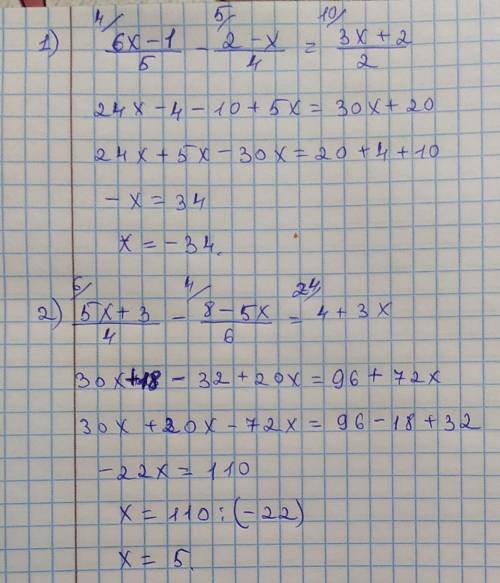 4/ 5/ 10/
1) (6x-1)/5 - (2-x)/4 = (3x+2)/2
24x-4-10+5x=30x+20
24x+5x-30x=20+4+10
-x=34
x=-34.
6/ 4/ 24/
2) (5x+3)/4 - (8-5x)/6 = 4+3x
30x+18-32+20x=96+72x
30x+20x-72x=96-18+32
-22x=110
x=110:(-22)
x=5.